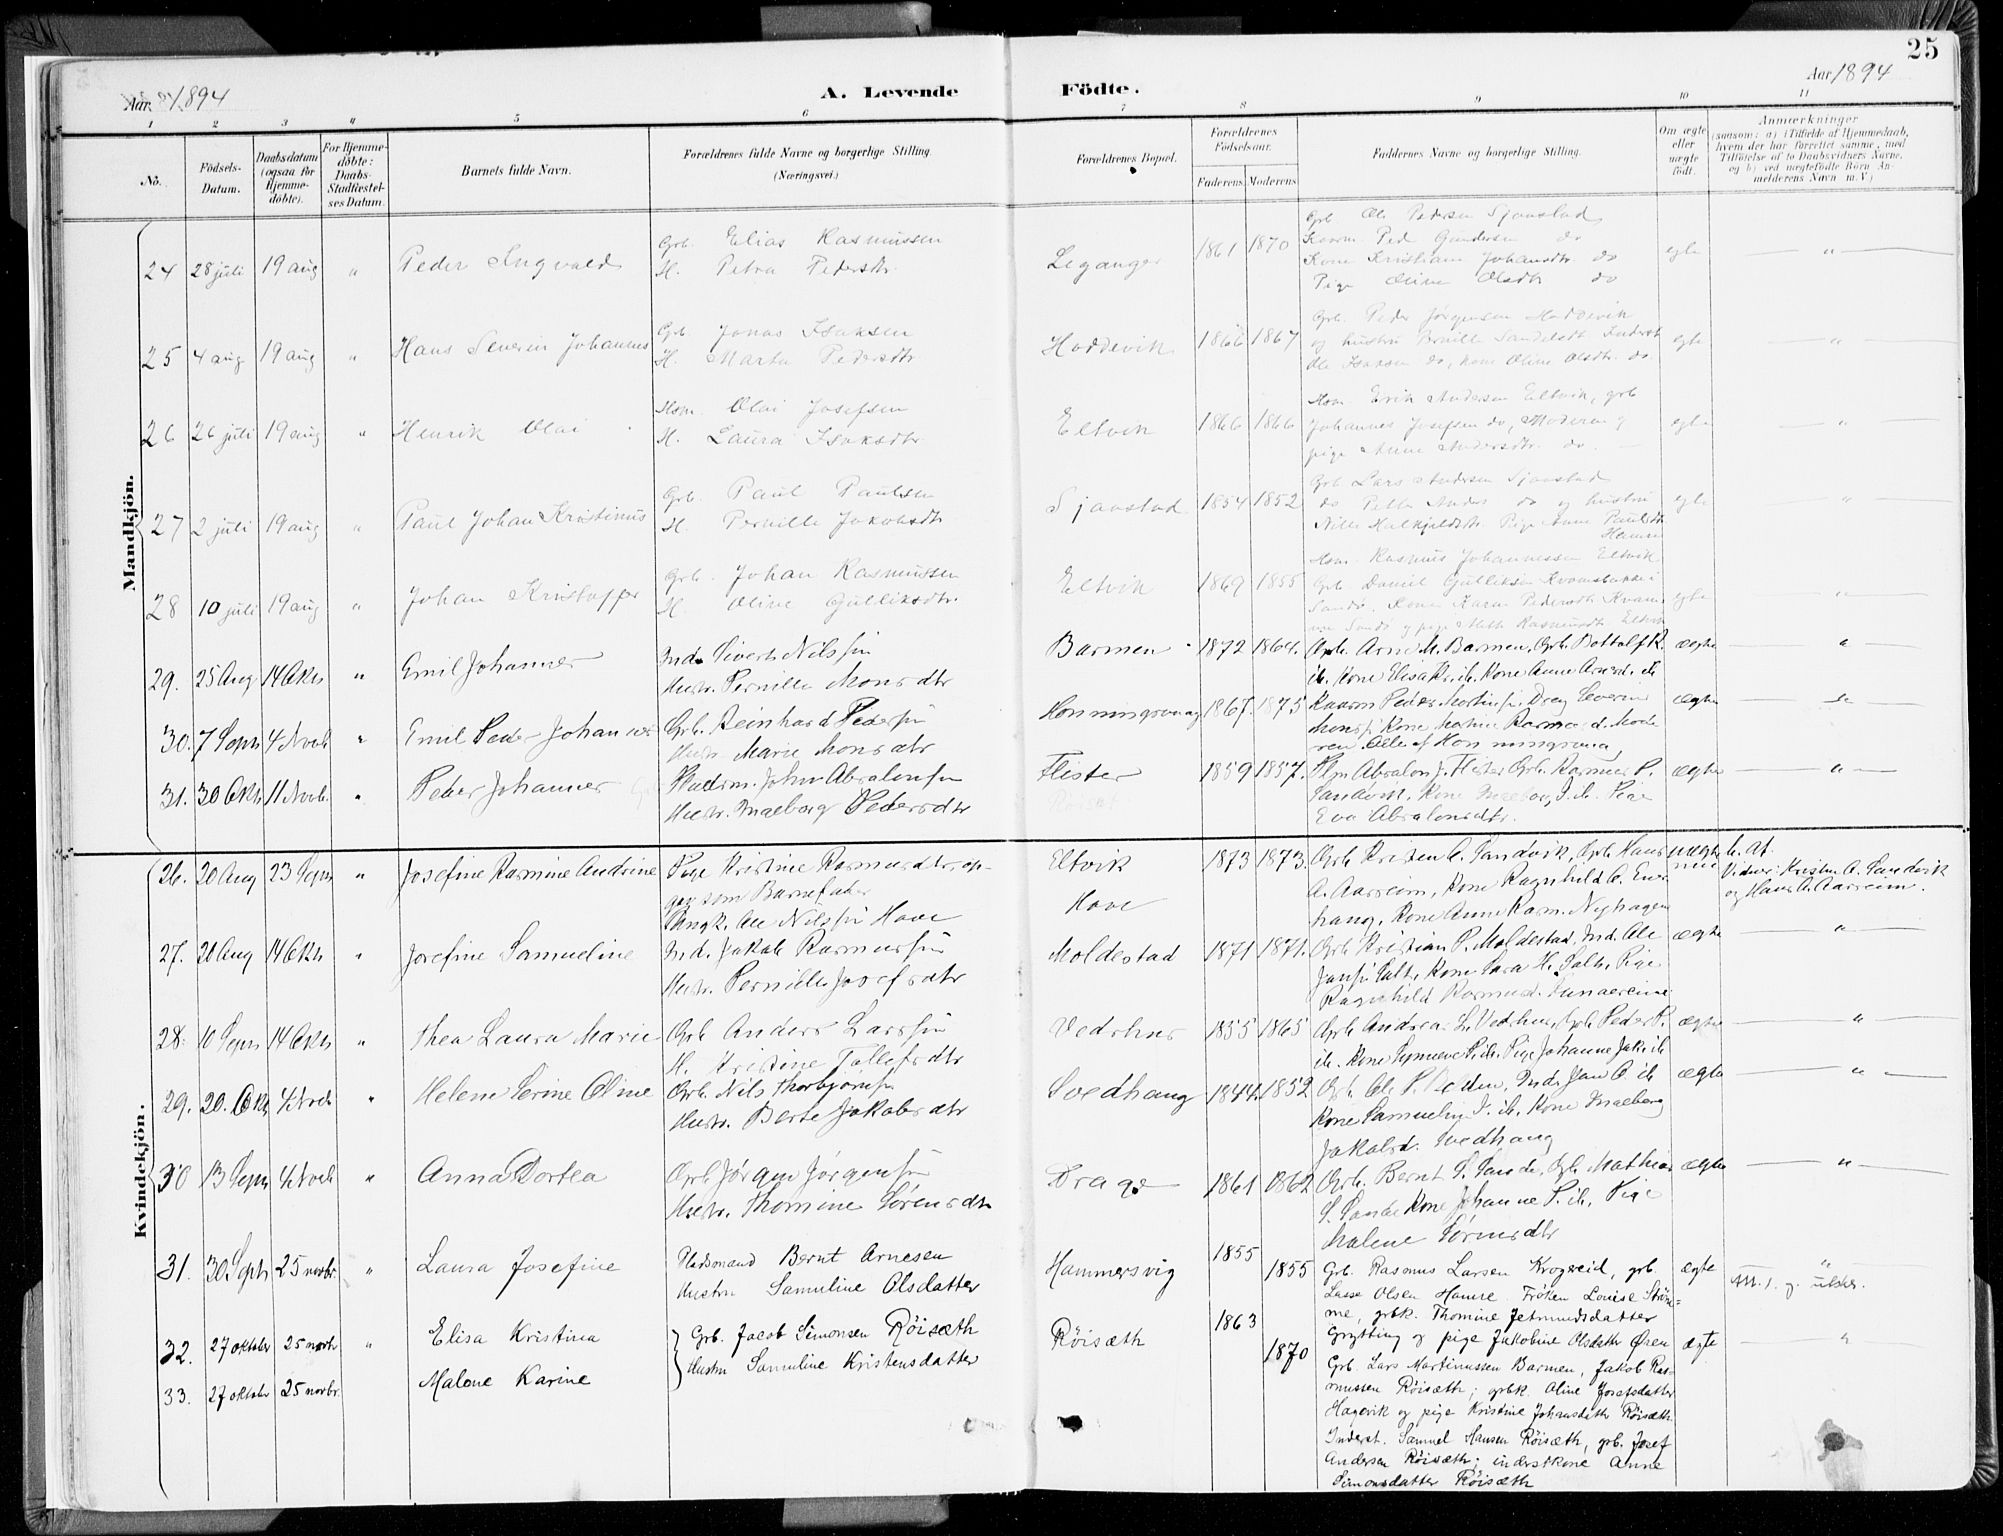 25
Aar 1894
A. Levende
Födte.
Aar 1894
1 2 3 4 5 6 7 8 9 10 11
No.
Födsels-
Datum.
Daabsdatum
(ogsaa for
Hjemme-
döbte).
For Hjemme-
döbte:
Daabs-
Stadfæstel-
ses Datum.
Barnets fulde Navn.
Forældrenes fulde Navne og borgerlige Stilling.
(Næringsvei.)
Forældrenes Bopæl.
Forældrenes
Födselsaar.
Faderens Moderens
Faddernes Navne og borgerlige Stilling.
Om ægte
eller
uægte
födt.
Anmærkninger
(saasom: a) i Tilfælde af Hjemmedaab,
hvem der har forrettet samme, med
Tilföielse af to Daabsvidners Navne,
og b) ved uægtefödte Börn An-
melderens Navn m. V.)
Mandkjön.
24 28 juli 19 aug " Peder Ingvald
Grb. Elias Rasmussen
H. Petra Pedersdtr.
Leganger 1861 1870
Grb Ole Pedersen Sjaastad
Kaarm. Ped Gundersen do
Kone Kristiane Johansdtr do
Pige Oline Olsdtr do
egte "
25 4 aug 19 aug " Hans Severin Johannes
Grb Jonas Isaksen
H. Marta Pedersdtr
Hoddevik 1866 1867
Grb. Peder Jørgensen Hoddevik
og hustru
Ole Isaksen do, kone Oline Olsdtr. do.
egte "
26 26 juli 19 aug " Henrik Olai
Hsm. Olai Josefsen
H. Laura Isaksdtr.
Eltvik 1866 1866
Hsm. Erik Andersen Eltvik, grb
Johannes Josefsen do, Moderen og
pige Anne Andersdtr. do.
egte "
27 2 juli 19 aug " Paul Johan Kristinus
Grb. Paul Paulsen
H. Pernille Jakobsdtr
Sjaastad 1854 1852
Grb Lars Andersen Sjaastad
do Petter Anders do og hustru
Pige Anne Paulsdtr
Hamre
egte "
28 10 juli 19 aug " Johan Kristoffer
Grb. Johan Rasmussen
H. Oline Gulliksdtr.
Eltvik 1869 1855
Hsm. Rasmus Johannessen Eltvik
Grb Daniel Gulliksen
Sandö. Kone Karen Pedersdtr Kvam
Sandö og pige Rasmusdtr Eltvik
egte "
29. 25 Aug 14 Okt " Emil Johannes
Ind. Sivert Nilssøn
Hustr. Pernille Monsdtr
Barmen 1872 1864.
Grb. Arne M. Barmen, Grb. Bottolf R.
ib. Kone Elisa Kr. ib. Kone Anne Arnesd. ib
ægte "
30. 7 Sept 4 Novb " Emil Peder Johannes
Grb. Reinhard Pedersøn
Hustr. Marie Monsdtr
Honningsvaag 1867. 1875
Kaarm Peder Mortinsøn Drag Severin
Monsøn Kone Rasmusd. Mode
ren. Alle af Honningsvaag
ægte "
31. 30 Okt. 11 Novb. " Peder Johannes
Pladsm. John Absalonsøn
Hustr. Ingeborg Pedersdtr
Flister 1859 1857.
Absalon J. Flister Grb. Rasmus P.
Sandvik, Kone Ingeborg J. ib. Pige
Eva Absalonsdtr.
ægte "
Kvindekjön.
26. 20 Aug 23 Sept " Josefine Rasmine Andrine
Pige Kristine Rasmusdtr, op-
gav som Barnefader
Ungk. Ole Nilssøn Hove
Eltvik
Hove
1873 1873.
Grb Kristen A. Sandvik, Grb. Hans
A. Aarreim, Kone Ragnhild A. Ever
hang, Kone Anne Rasm. Nyhagen
uægte
Vidner: Kristen A. Sandvik
og Hans A. Aarreim.
27. 20 Aug 14 Okt " Josefine Samueline
Ind. Jakob Rasmussøn
Hustr. Pernille Josefsdtr
Moldestad 1871 1871.
Grb Kristian P. Moldestad, Ind. Ole
Jansøn Salt, Kone Sara H. Salt, Pige
Ragnhild Rasmusd.
ægte "
28. 10 Sept 14 Okt " Thea Laura Marie
Grb Anders Larssøn
H. Kristine Tollefsdtr
Vedhus 1855 1865
Grb Andreas L. Vedhus, Grb Peder P.
ib. Kone Synneve P. ib. Pige Johanne Jak. ib
ægte "
29. 20. Okt 4 Novb " Helene Serine Oline
Grb. Nils Thorbjørnsøn
Hustr. Berte Jakobsdtr
Svedhaug 1844. 1852
Grb. Ole P. Ind. Jan O. ib
Kone Samueline J. ib. Kone Ingeborg
Jakobsd. Svedhaug
ægte "
30 13 Sept 4 Novb " Anna Dortea
Grb Jørgen Jørgensøn
Hustr. Thomine Sørensdtr
Drage 1861 1862
Grb. Bernt S. Sande, Grb Mathias
S. Sande Kone Johanne P. ib. Pige
Malene Sørensdtr
ægte "
31. 30 Sept 25 novbr. " Laura Josefine
Pladsmand Bernt Arnesen
Hustru Samuline Olsdatter
Hammersvig 1855 1855
Grb. Rasmus Larsen Krogereid, grb.
Lasse Olsen Hamre. Frøken Louise Strøm-
me, grbk. Thomine Jetmundsdatter
Grytting og pige Jakobine Olsdatter Øren
ægte "
32. 27 oktober 25 novbr " Elisa Kristina
33. 27 oktober 25 novbr. Malene Karine
Grb. Jacob Simonsen Röisæth
Hustru Samuline Kristensdatter
Röisæth 1863 1870
Grb. Lars Martinussen Barmen, Jakob Ras-
mussen Röisæth; grbk. Oline Josefsdatter
Hagevik og pige Kristine Johansdatter Röisæth
Inderst. Samuel Hansen Röisæth, grb. Josef
Andersen Röisæth; inderstkone Anne
Simonsdatter Röisæth
ægte "